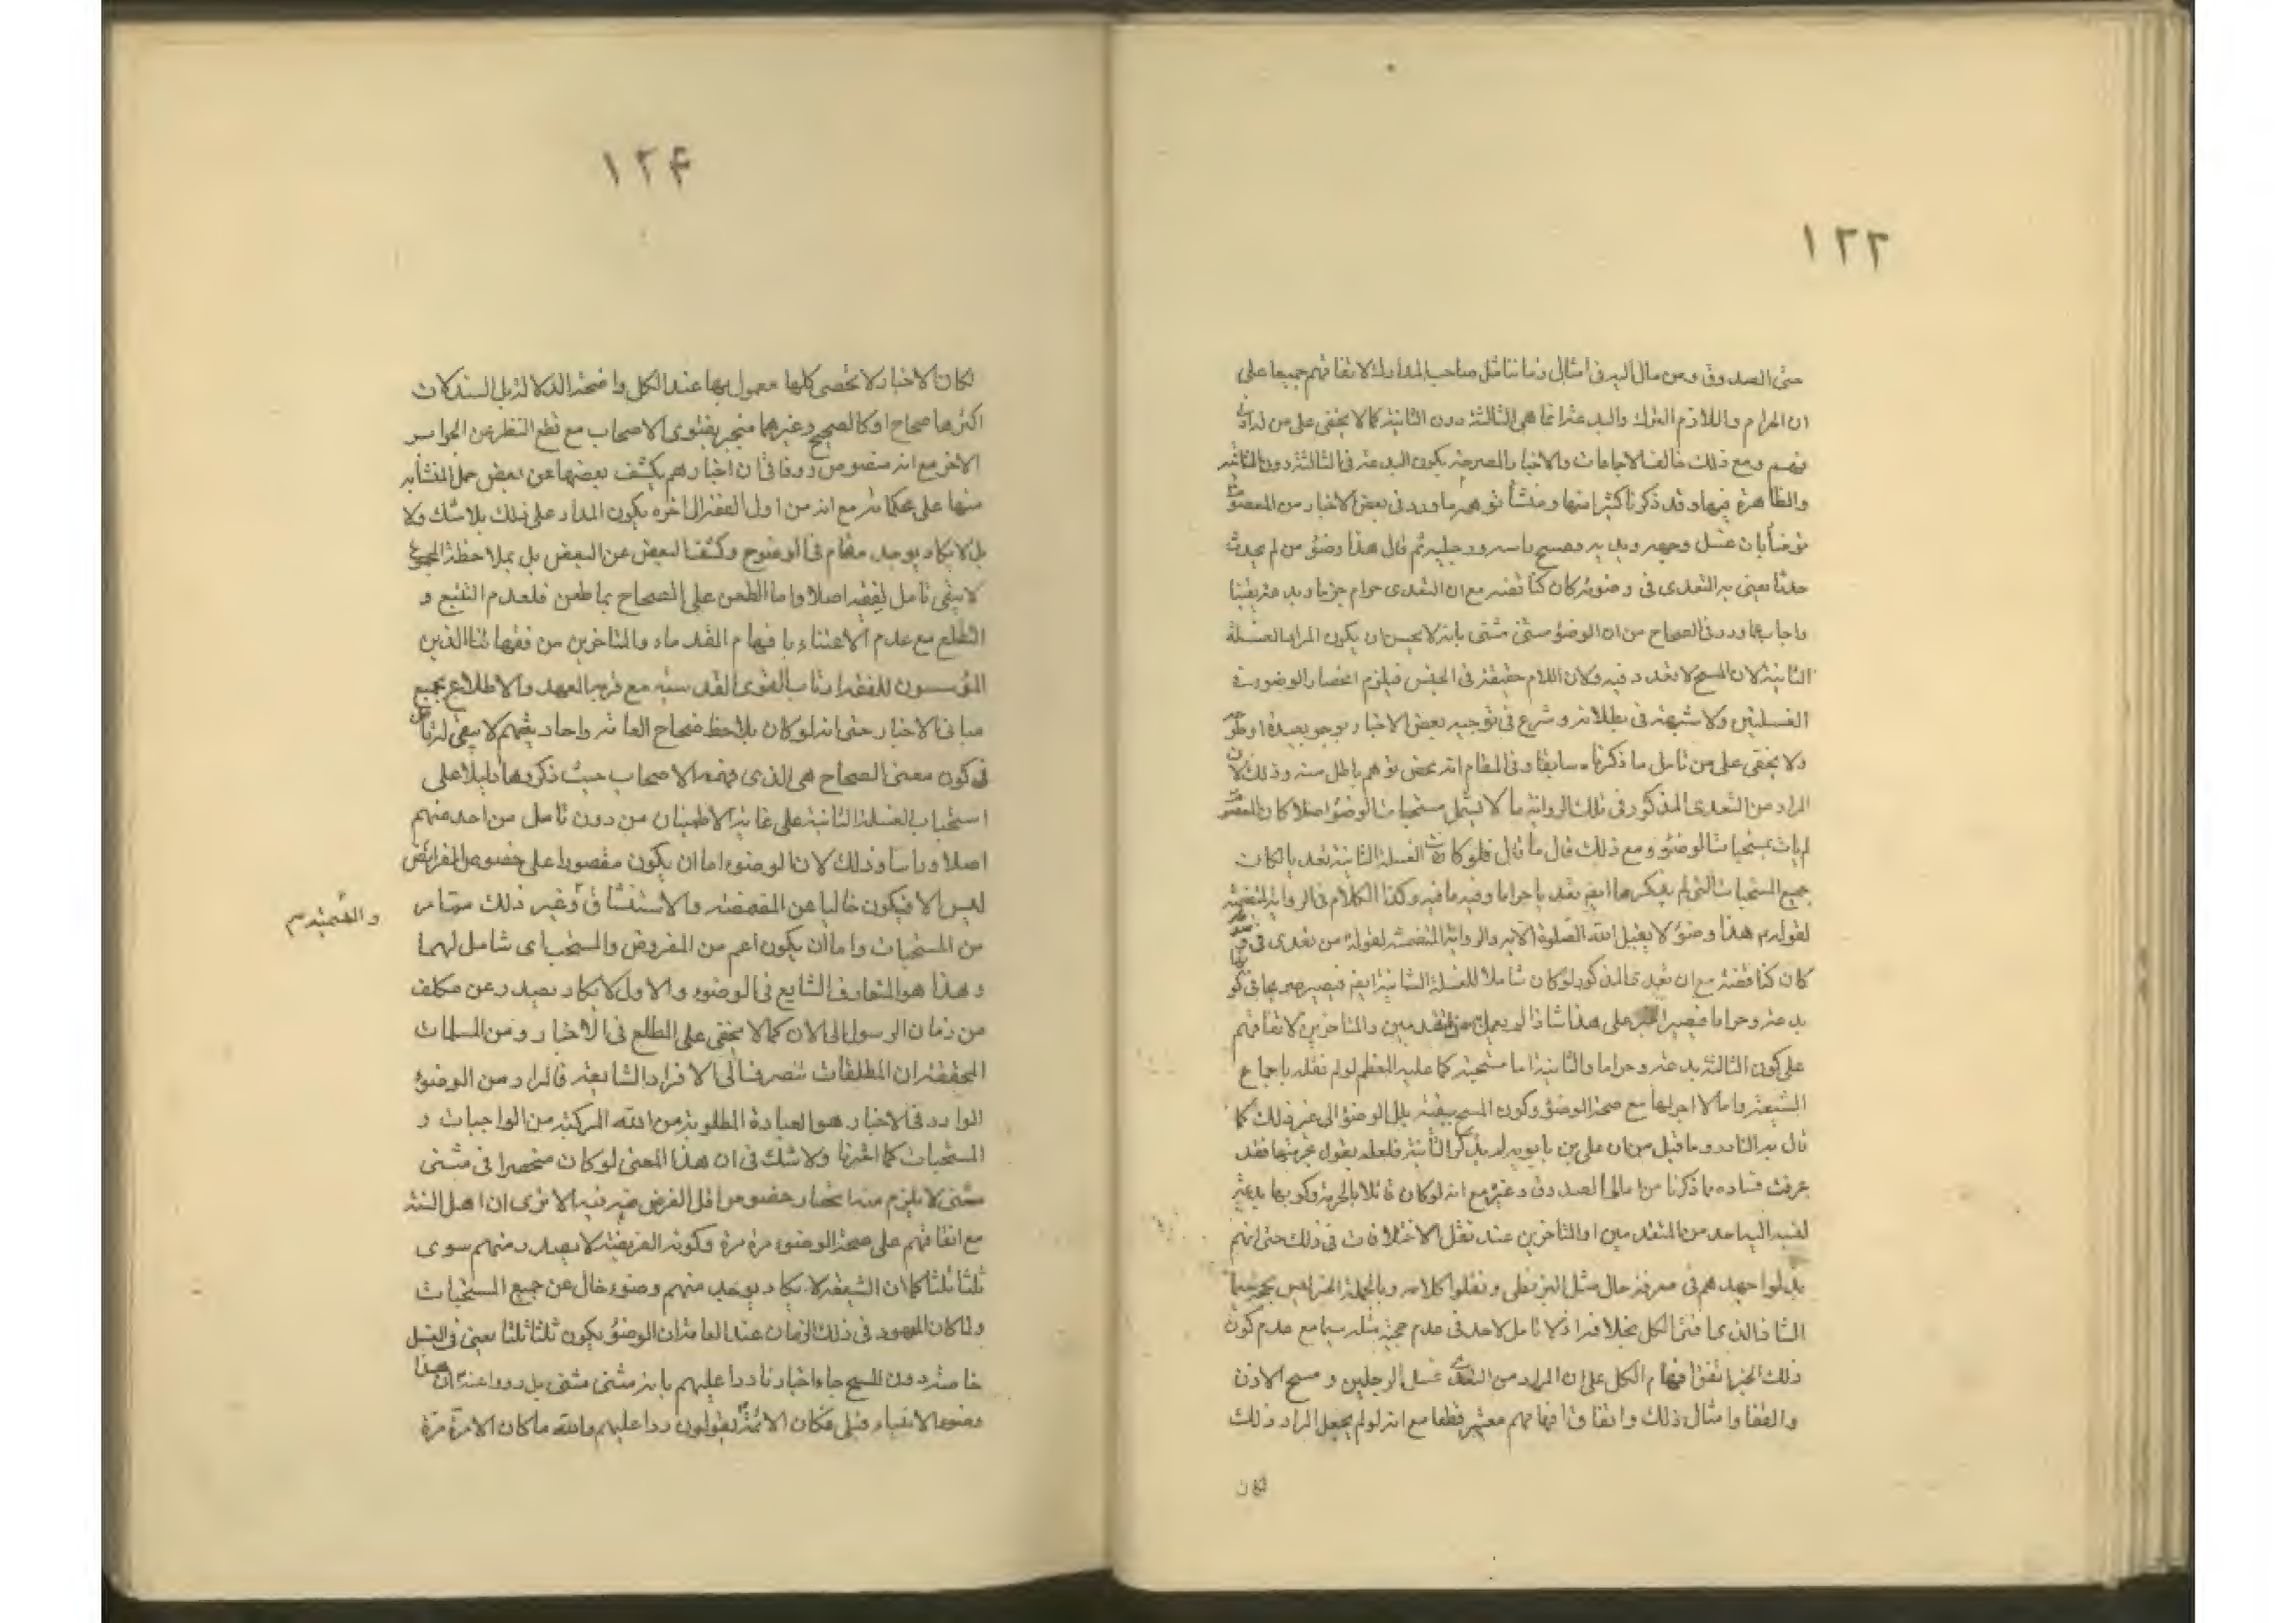 ١٢٣
حتى الصدوق ومن مال اليه فى امثال زماننا مثل صاحب المدارك لاتفاقهم جميعا على
ان الحرام واللازم الترك والبدعة انما هى الثالثة دون الثانية كما لا يخفى على من له ادنى
فهم ومع ذلك خالف الاجماعات والاخبار الصريحة بكون البدعة فى الثالثة دون الثانية
والظاهرة فيها وقد ذكرنا كثيرا منها ومنشأ توهمه ما ورد فى بعض الاخبار من المعصوم
توضأ بان غسل وجهه ويديه ومسح راسه ورجليه ثم قال هذا وضوء من لم يحدث
حدثا يعنى به التعدى فى وضوئه كان كناقضه مع ان التعدى حرام جزما وبدعة يقينا
واجاب عما ورد فى الصحاح من ان الوضوء مثنى مثنى بانه لا يحسن ان يكون المراد الغسلة
الثانية لان المسح لا تعدد فيه ولان اللام حقيقة فى الجنس فيلزم انحصار الوضوء فى
الغسلتين ولا شبهة فى بطلانه وشرع فى توجيه بعض الاخبار بوجوه بعيدة او طرحه
ولا يخفى على من تامل ما ذكرناه سابقا وفى المقام انه محض توهم باطل منه وذلك لان
المراد من التعدى المذكور فى تلك الرواية ما لا يشمل مستحبات الوضوء اصلا كان المعصوم
لم يات بمستحبات الوضوء ومع ذلك قال ما قال فلو كانت الغسلة الثانية تعديا لكانت
جميع المستحبات التى لم يذكرها ايض تعديا حراما وفيه ما فيه وكذا الكلام فى الرواية المتضمنة
لقوله م هذا وضوء لا يقبل الله الصلوة الا به والرواية المتضمنة لقوله من تعدى فى
كان كناقضه مع ان تعدى المذكور لو كان شاملا للغسلة الثانية ايض فيصير
بدعة وحراما فيصير الخبر على هذا شاذا لم يعمل من المتقدمين والمتاخرين لاتفاقهم
على كون الثالثة بدعة وحراما والثانية اما مستحبة كما عليه المعظم لو لم نقله باجماع
الشيعة واما لا اجر لها مع صحة الوضوء وكون المسح ببقية بلل الوضوء الى غير ذلك كما
قال به النادر وما قيل من ان على بن بابويه لم يذكر الثانية فلعله يقول بحرمتها فقد
عرفت فساده بما ذكرنا من امالى الصدوق وغيره مع انه لو كان قائلا بالحرمة وكونها بدعة
لنسبه اليه احد من المتقدمين او المتاخرين عند نقل الاختلافات فى ذلك حتى انهم
بذلوا جهدهم فى معرفة حال مثل البزنطى ونقلوا كلامه وبالجملة الخبر ليس بحجة سيما
الشاذ الذى افتى الكل بخلافه اذ لا تامل لاحد فى عدم حجية مثله سيما مع عدم كون
ذلك الخبر اتفق افهام الكل على ان المراد من التعدى غسل الرجلين ومسح الاذن
والقفا وامثال ذلك واتفاق افهامهم معتبر قطعا مع انه لو لم يجعل المراد ذلك
لكان
١٢۴
لكان الاخبار لا تحصى كلها معمول بها عند الكل واضحة الدلالة بل السند كانت
اكثرها صحاح او كالصحيح وغيرهما منجبر بفتوى الاصحاب مع قطع النظر عن الجوابر
الاخر مع انه منصوص ورد فا ان اخبارهم يكشف بعضها عن بعض حمل المتشابه
منها على محكماته مع انه من اول الفقه الى اخره يكون المدار على ذلك بلا شك ولا
بل لا يكاد يوجد مقام فى الوضوح وكشف البعض عن البعض بل بملاحظة المجموع
لا يبقى تامل لفقيه اصلا واما الطعن على الصحاح بما طعن فلعدم التتبع و
التطلع مع عدم الاعتناء بافهام القدماء والمتاخرين من فقهائنا الذين
المؤسسون للفقه ارباب القوى القدسية مع قرب العهد والاطلاع بجميع
مبانى الاخبار حتى انه لو كان يلاحظ صحاح العامة واحاديثهم لا يبقى له تأمل
فى كون معنى الصحاح هى الذى فهمه الاصحاب حيث ذكروها دليلا على
استحباب الغسلة الثانية على غاية الاطمينان من دون تامل من احد منهم
اصلا وراسا وذلك لان الوضوء اما ان يكون مقصورا على خصوص الفرائض
ليس الا فيكون خاليا عن المضمضة والاستنشاق وغير ذلك مما مر
والتسمية م
من المستحبات واما ان يكون اعم من المفروض والمستحب اى شامل لهما
وهذا هو المتعارف الشايع فى الوضوء والاول لا يكاد يصدر عن مكلف
من زمان الرسول الى الان كما لا يخفى على المطلع فى الاخبار ومن المسلمات
المحققة ان المطلقات تنصرف الى الافراد الشايعة فالمراد من الوضوء
الوارد فى الاخبار هو العبادة المطلوبة من الله المركبة من الواجبات و
المستحبات كما اشرنا ولا شك فى ان هذا المعنى لو كان منحصرا فى مثنى
مثنى لا يلزم منه انحصار خصوص اقل الفرض فيه الا ترى ان اهل السنة
مع اتفاقهم على صحة الوضوء مرة مرة وكونه الفريضة لا يصدر منهم سوى
ثلثا ثلثا كما ان الشيعة لا يكاد يوجد منهم وضوء خال عن جميع المستحبات
ولما كان المعهود فى ذلك الزمان عند العامة ان الوضوء يكون ثلثا ثلثا يعنى فى الغسل
خاصة دون المسح جاء اخبارنا ردا عليهم بانه مثنى مثنى بل رووا عنه ان هذا
وضوء الانبياء قبلى فكان الائمة يقولون ردا عليهم والله ما كان الا مرة مرة